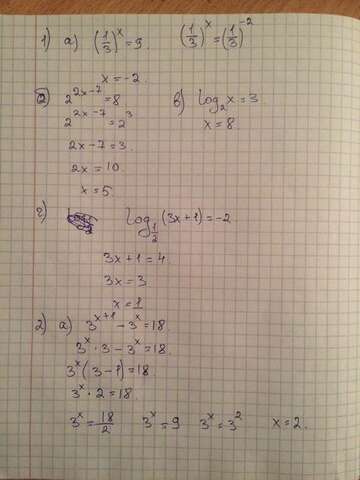 1) а) (1/3)^x = 9. (1/3)^x = (1/3)^-2
x = -2.
2) 2^(2x-7) = 8 в) log_2 x = 3
2^(2x-7) = 2^3 x = 8.
2x-7 = 3.
2x = 10.
x = 5.
г) log_(1/2) (3x+1) = -2
3x+1 = 4.
3x = 3
x = 1
2) а) 3^(x+1) - 3^x = 18.
3^x · 3 - 3^x = 18.
3^x (3-1) = 18.
3^x · 2 = 18.
3^x = 18/2 3^x = 9 3^x = 3^2 x = 2.